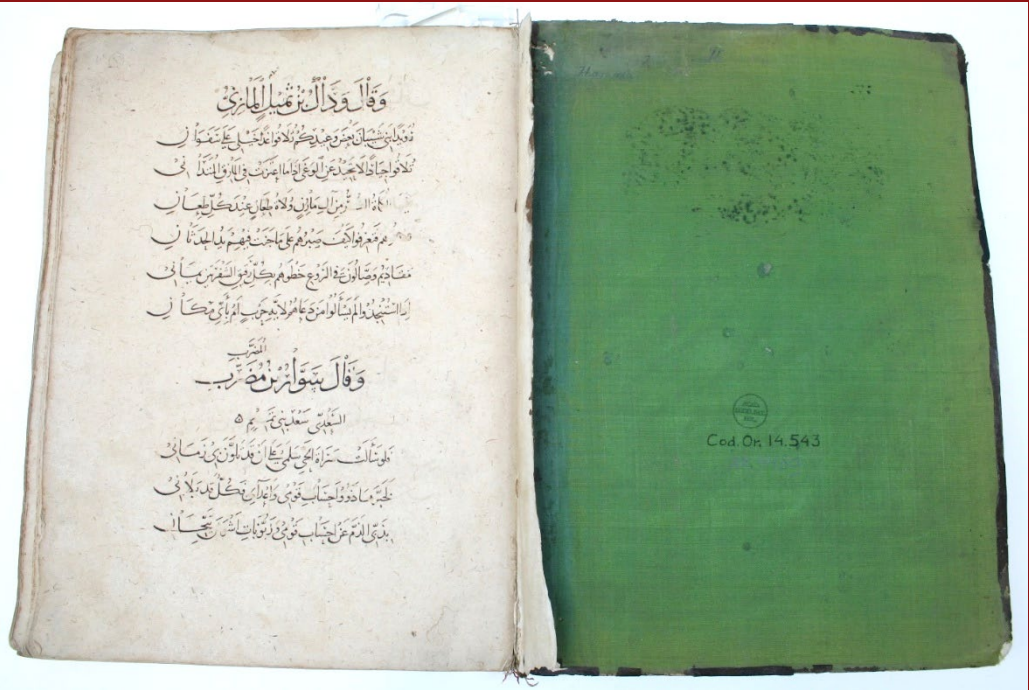 وَقَالَ وَدَّاكُ بْنُ ثُمَيْلٍ الْمَازِنِيُّ
رُوَيْدَ بَنِي شَيْبَانَ بَعْضَ وَعِيدِكُمْ تُلَاقُوا غَدًا خَيْلِي عَلَى سَفَوَانِ
تُلَاقُوا جِيَادًا لَا تَحِيدُ عَنِ الْوَغَى إِذَا مَا اغْتَدَتْ فِي الْمَأْزِقِ الْمُتَدَانِي
الكماة مِن آلِ مَازِنٍ وُلَاةُ طِعَانٍ عِنْدَ كُلِّ طِعَانِ
فتعرفوا كَيْفَ صَبْرُهُمْ عَلَى مَا جَنَتْ فِيهِمْ يَدُ الْحَدَثَانِ
مَقَادِيمُ وَصَّالُونَ فِي الرَّوْعِ خَطْوَهُمْ بِكُلِّ رَقِيقِ الشَّفْرَتَيْنِ يَمَانِي
إِذَا اسْتُنْجِدُوا لَمْ يَسْأَلُوا مَنْ دَعَاهُمُ لِأَيَّةِ حَرْبٍ أَمْ بِأَيِّ مَكَانِ
المُضَرَّب
وَقَالَ سَوَّارُ بْنُ مُضَرِّبٍ
السَّعْدِيُّ سَعْدُ بَنِي تَمِيمٍ
فَلَوْ سَأَلَتْ سَرَاةَ الْحَيِّ سَلْمَى عَلَى أَنْ قَدْ تَلَوَّنَ بِي زَمَانِي
لَخَبَّرَهَا ذَوُو أَحْسَابِ قَوْمِي وَأَعْدَائِي فَكُلٌّ قَدْ بَلَانِي
بِذَبِّي الذَّمَّ عَنْ أَحْسَابِ قَوْمِي وَزَبُّونَاتِ أَشْوَسَ تَيَّحَانِ
Cod. Or. 14.543